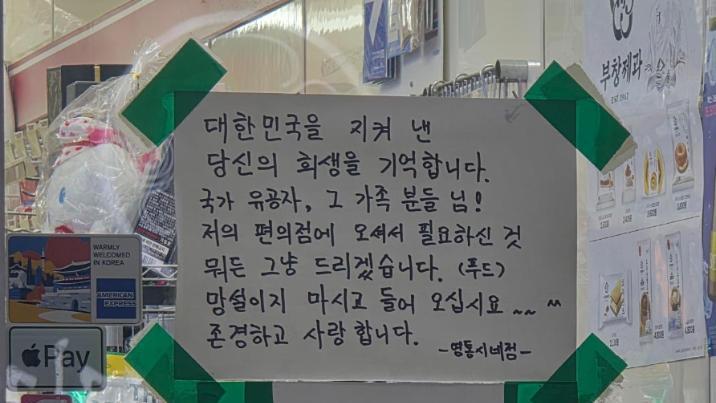 대한민국을 지켜 낸
당신의 희생을 기억합니다.
국가 유공자, 그 가족 분들 님!
저의 편의점에 오셔서 필요하신 것
뭐든 그냥 드리겠습니다. (푸드)
망설이지 마시고 들어 오십시요~~ ^^
존경하고 사랑합니다.
-명통시네점-
WARMLY
WELCOMED
IN KOREA
AMERICAN
EXPRESS
Pay
부창제과